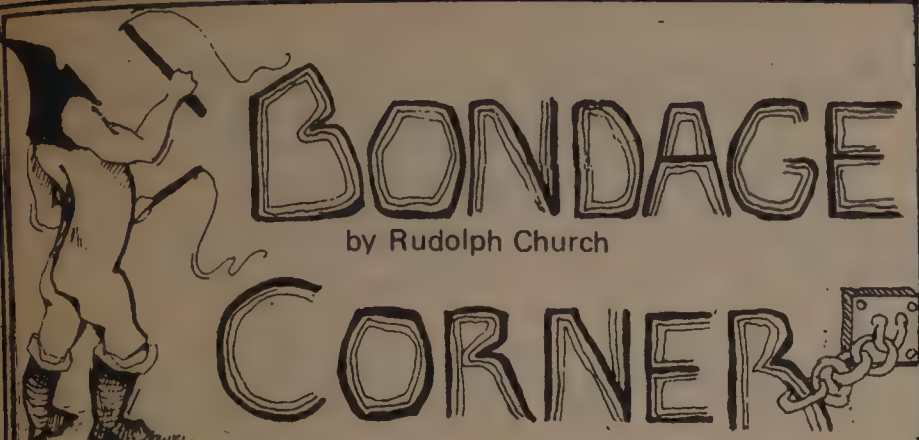 BONDAGE
by Rudolph Church
CORNER